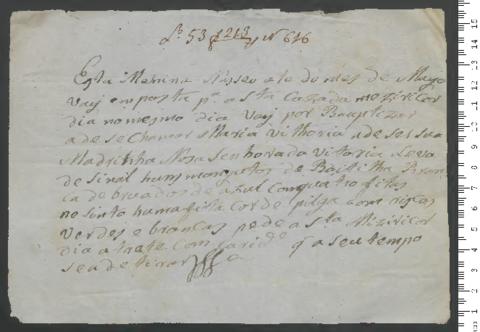 Lº 53 f 213 Nº 616
Esta Menina Nasseo a le do mes de Mayo
Vay emposta pª a Sta Caza da meziricor
dia no mesmo dia Vay por Baptizar
a de se chamar Maria Vithoria a de ser sua
Madrinha Nosa Senhora da Vitoria Leva
de sinal hum de Baitilha Bran
ca de bruado de azul com quatro fitas
no sinto huma fita cor de com riscas
verdes e brancas pede a Sta Miziricor
dia a trate com Caride q a seu tempo
se a de tirar